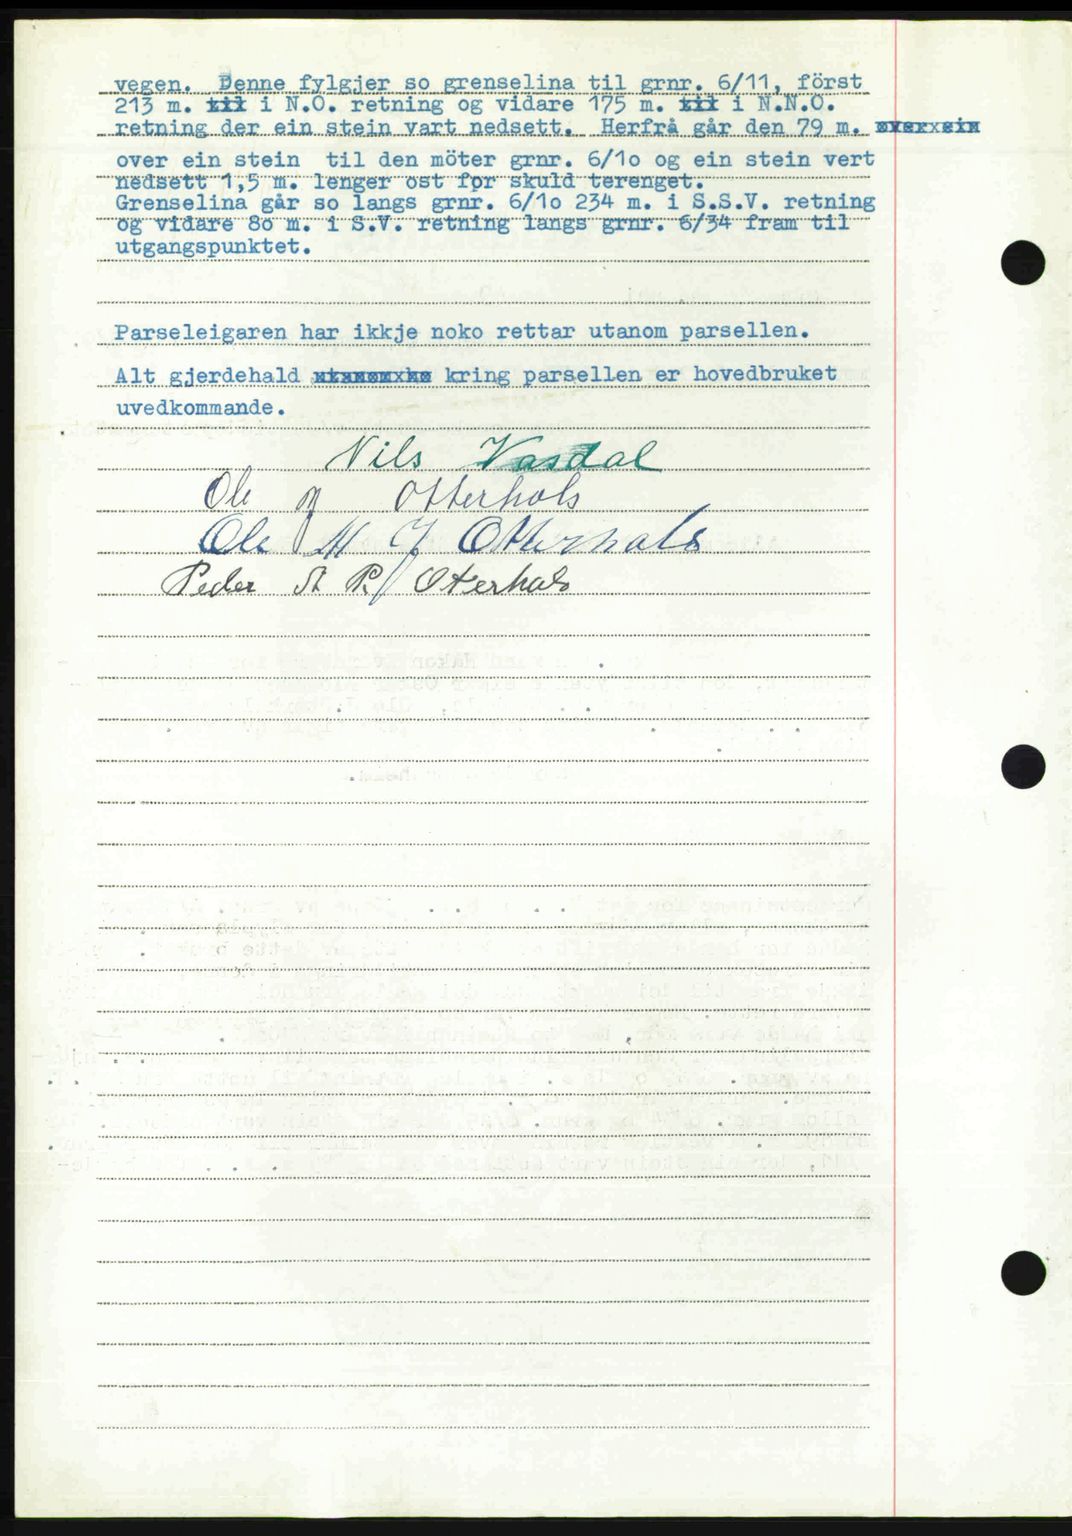 vegen.  Denne fylgjer so grenselina til grnr. 6/11, först
213 m. til i N.O. retning og vidare 175 m. til i N.N.O.
retning der ein stein vart nedsett.  Herfrå går den 79 m.
over ein stein  til den möter grnr. 6/1o og ein stein vert
nedsett 1,5 m. lenger ost for skuld terenget.
Grenselina går so langs grnr. 6/1o 234 m. i S.S.V. retning
og vidare 8o m. i S.V. retning langs grnr. 6/34 fram til
utgangspunktet.
Parseleigaren har ikkje noko rettar utanom parsellen.
Alt gjerdehald kring parsellen er hovedbruket
uvedkommande.
Nils Vasdal
Ole Otterhals
Ole M J Otterhals
Peder A P. Oterhals